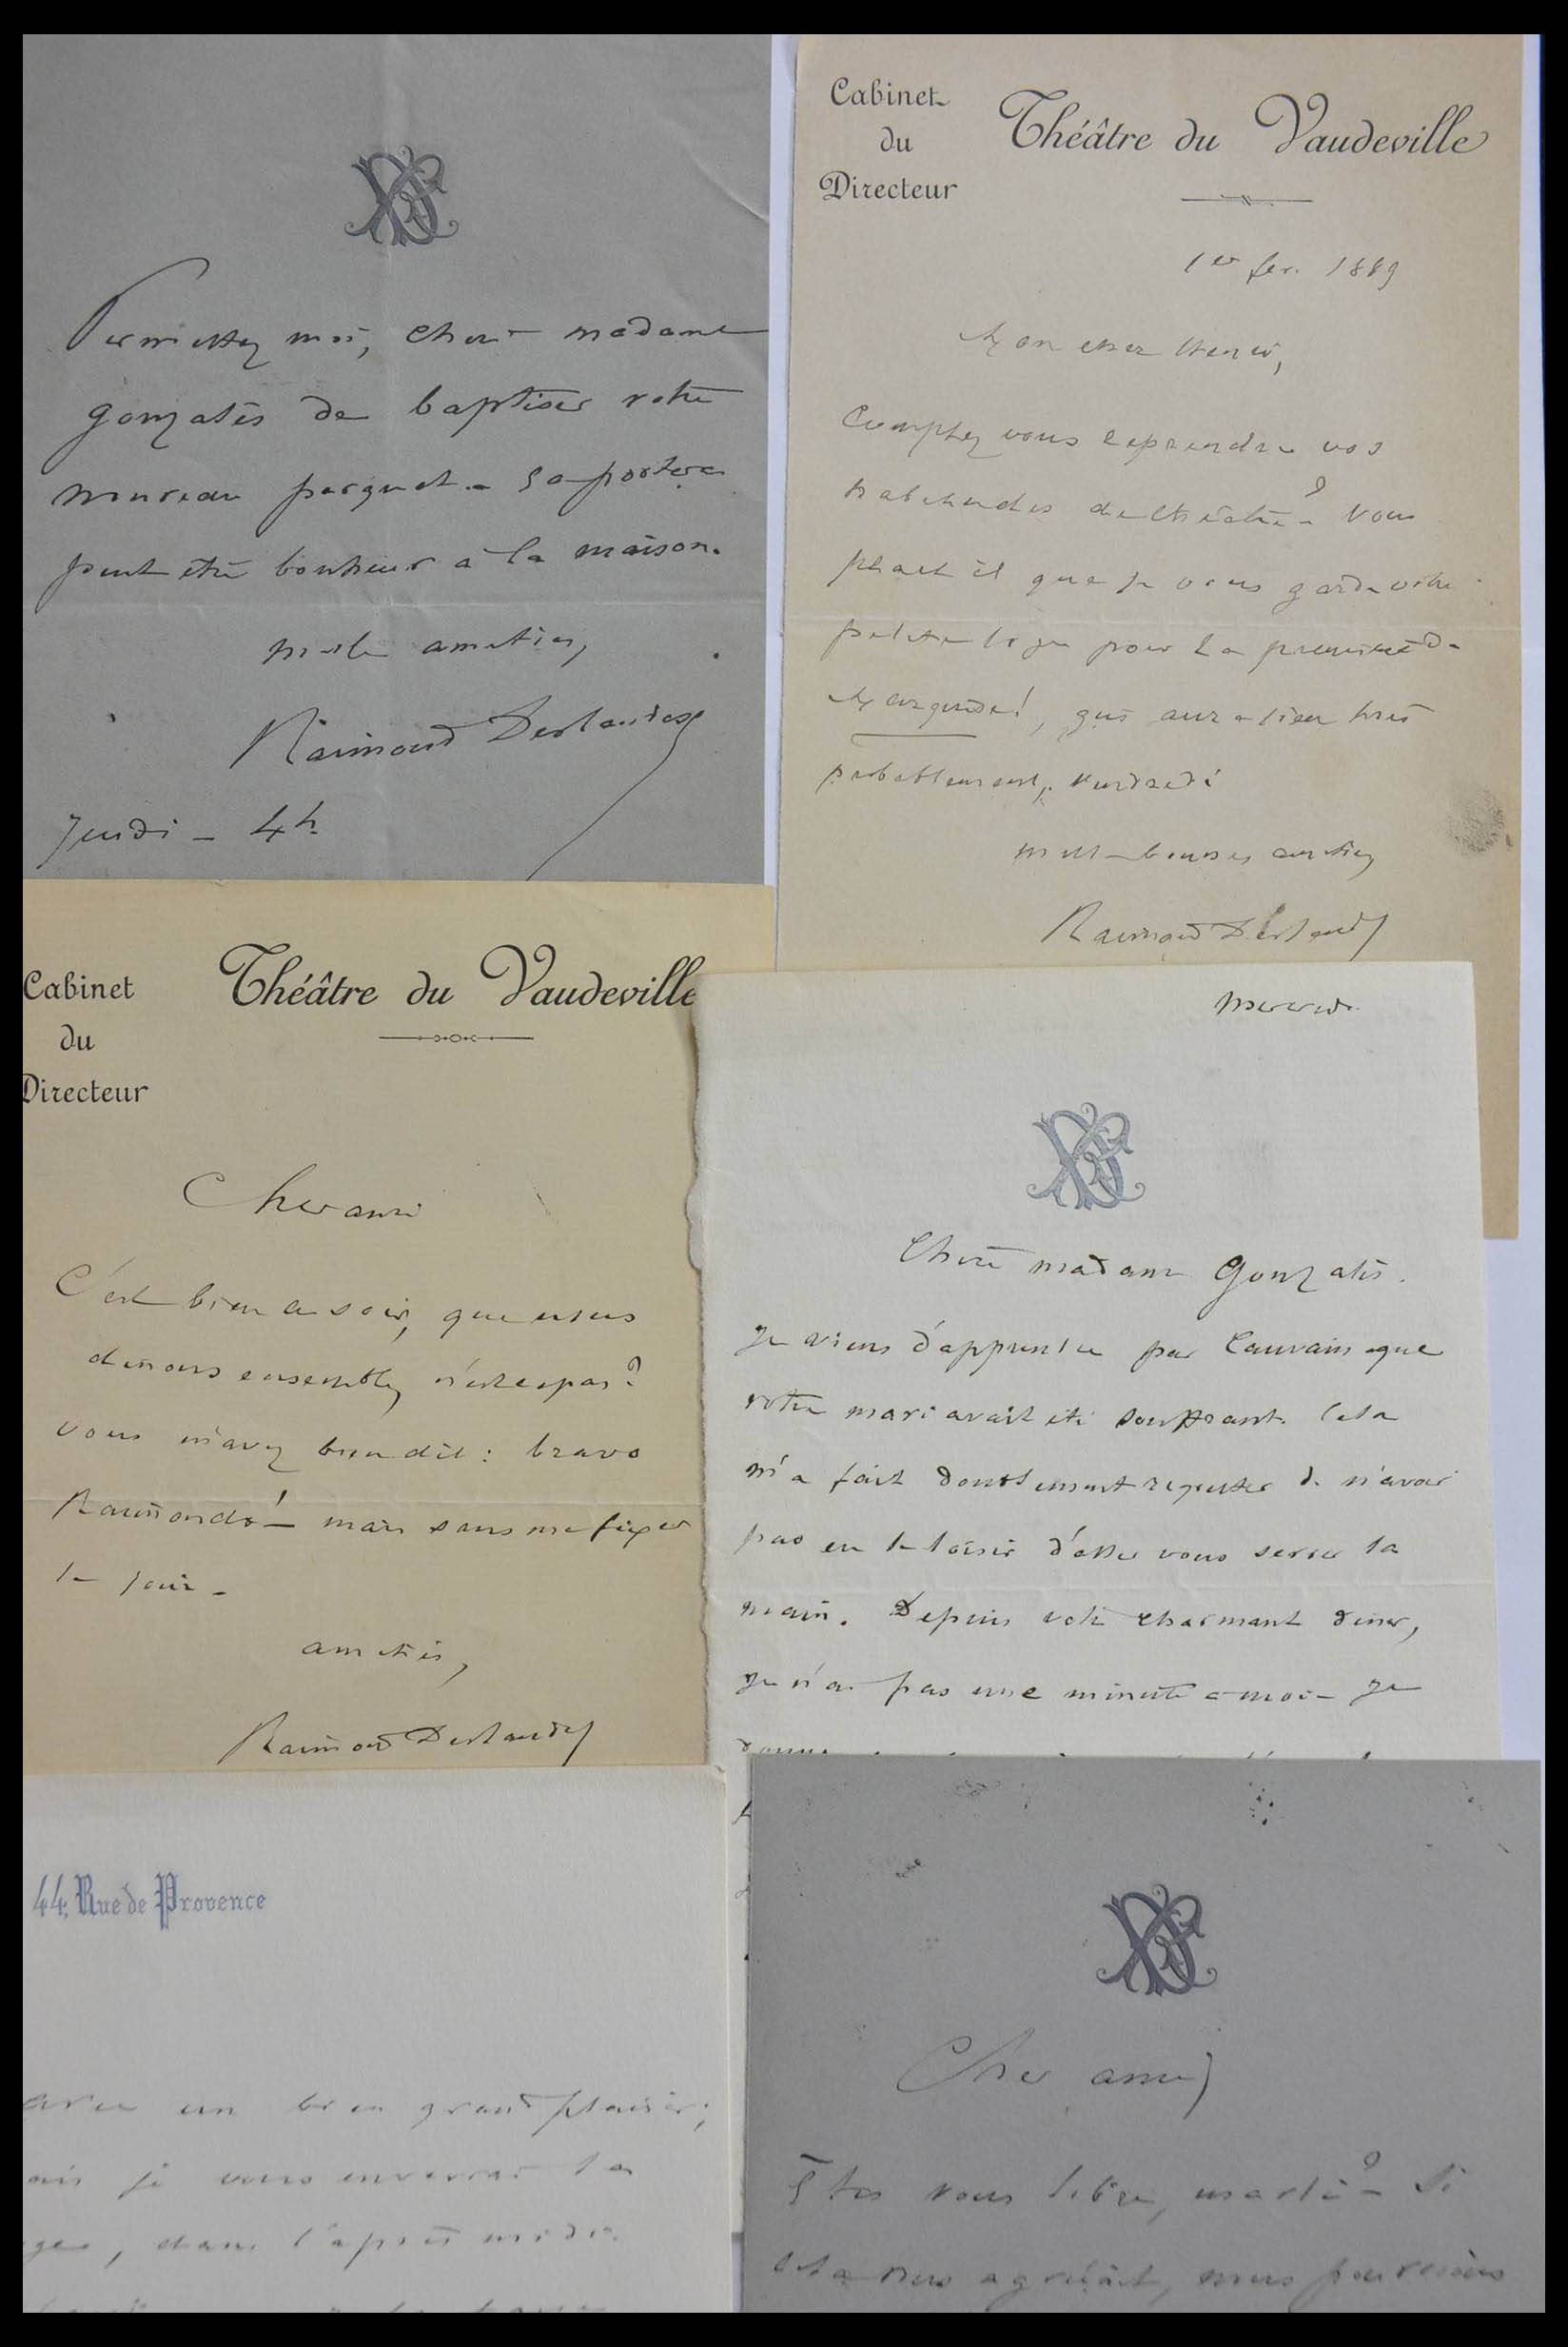 Permettez moi, chère madame
Gonzalès de baptiser votre
nouveau parquet - ça portera
peut être bonheur à la maison.
mille amitiés,
Raimond Deslandes
Jeudi - 4h
Cabinet
du
Directeur
Théâtre du Vaudeville
1er fev. 1889
Mon cher Henri,
Comptez vous reprendre vos
habitudes de théâtre? Vous
plait il que je vous garde votre
petite loge pour la première de
Marquise!, qui aura lieu très
probablement, vendredi
mille bonnes amitiés
Raimond Deslandes
Cabinet
du
Directeur
Théâtre du Vaudeville
Cher ami
C'est bien ce soir, que nous
dinons ensemble, n'est ce pas?
Vous m'avez bien dit: bravo
Raimondo! - mais sans me fixer
le jour -
amitiés,
Raimond Deslandes
Mercredi
Chère madame Gonzalès.
Je viens d'apprendre par Cauvain que
votre mari avait été souffrant. Cela
m'a fait doublement regretter de n'avoir
pas eu le loisir d'aller vous serrer la
main. Depuis votre charmant diner,
je n'ai pas une minute à moi - Je
44, Rue de Provence
avec un bien grand plaisir;
ais je vous enverrai la
ge, dans l'après midi.
Cher ami,
Etes vous libre, mardi? - Si
cela vous agréait, nous pourrions